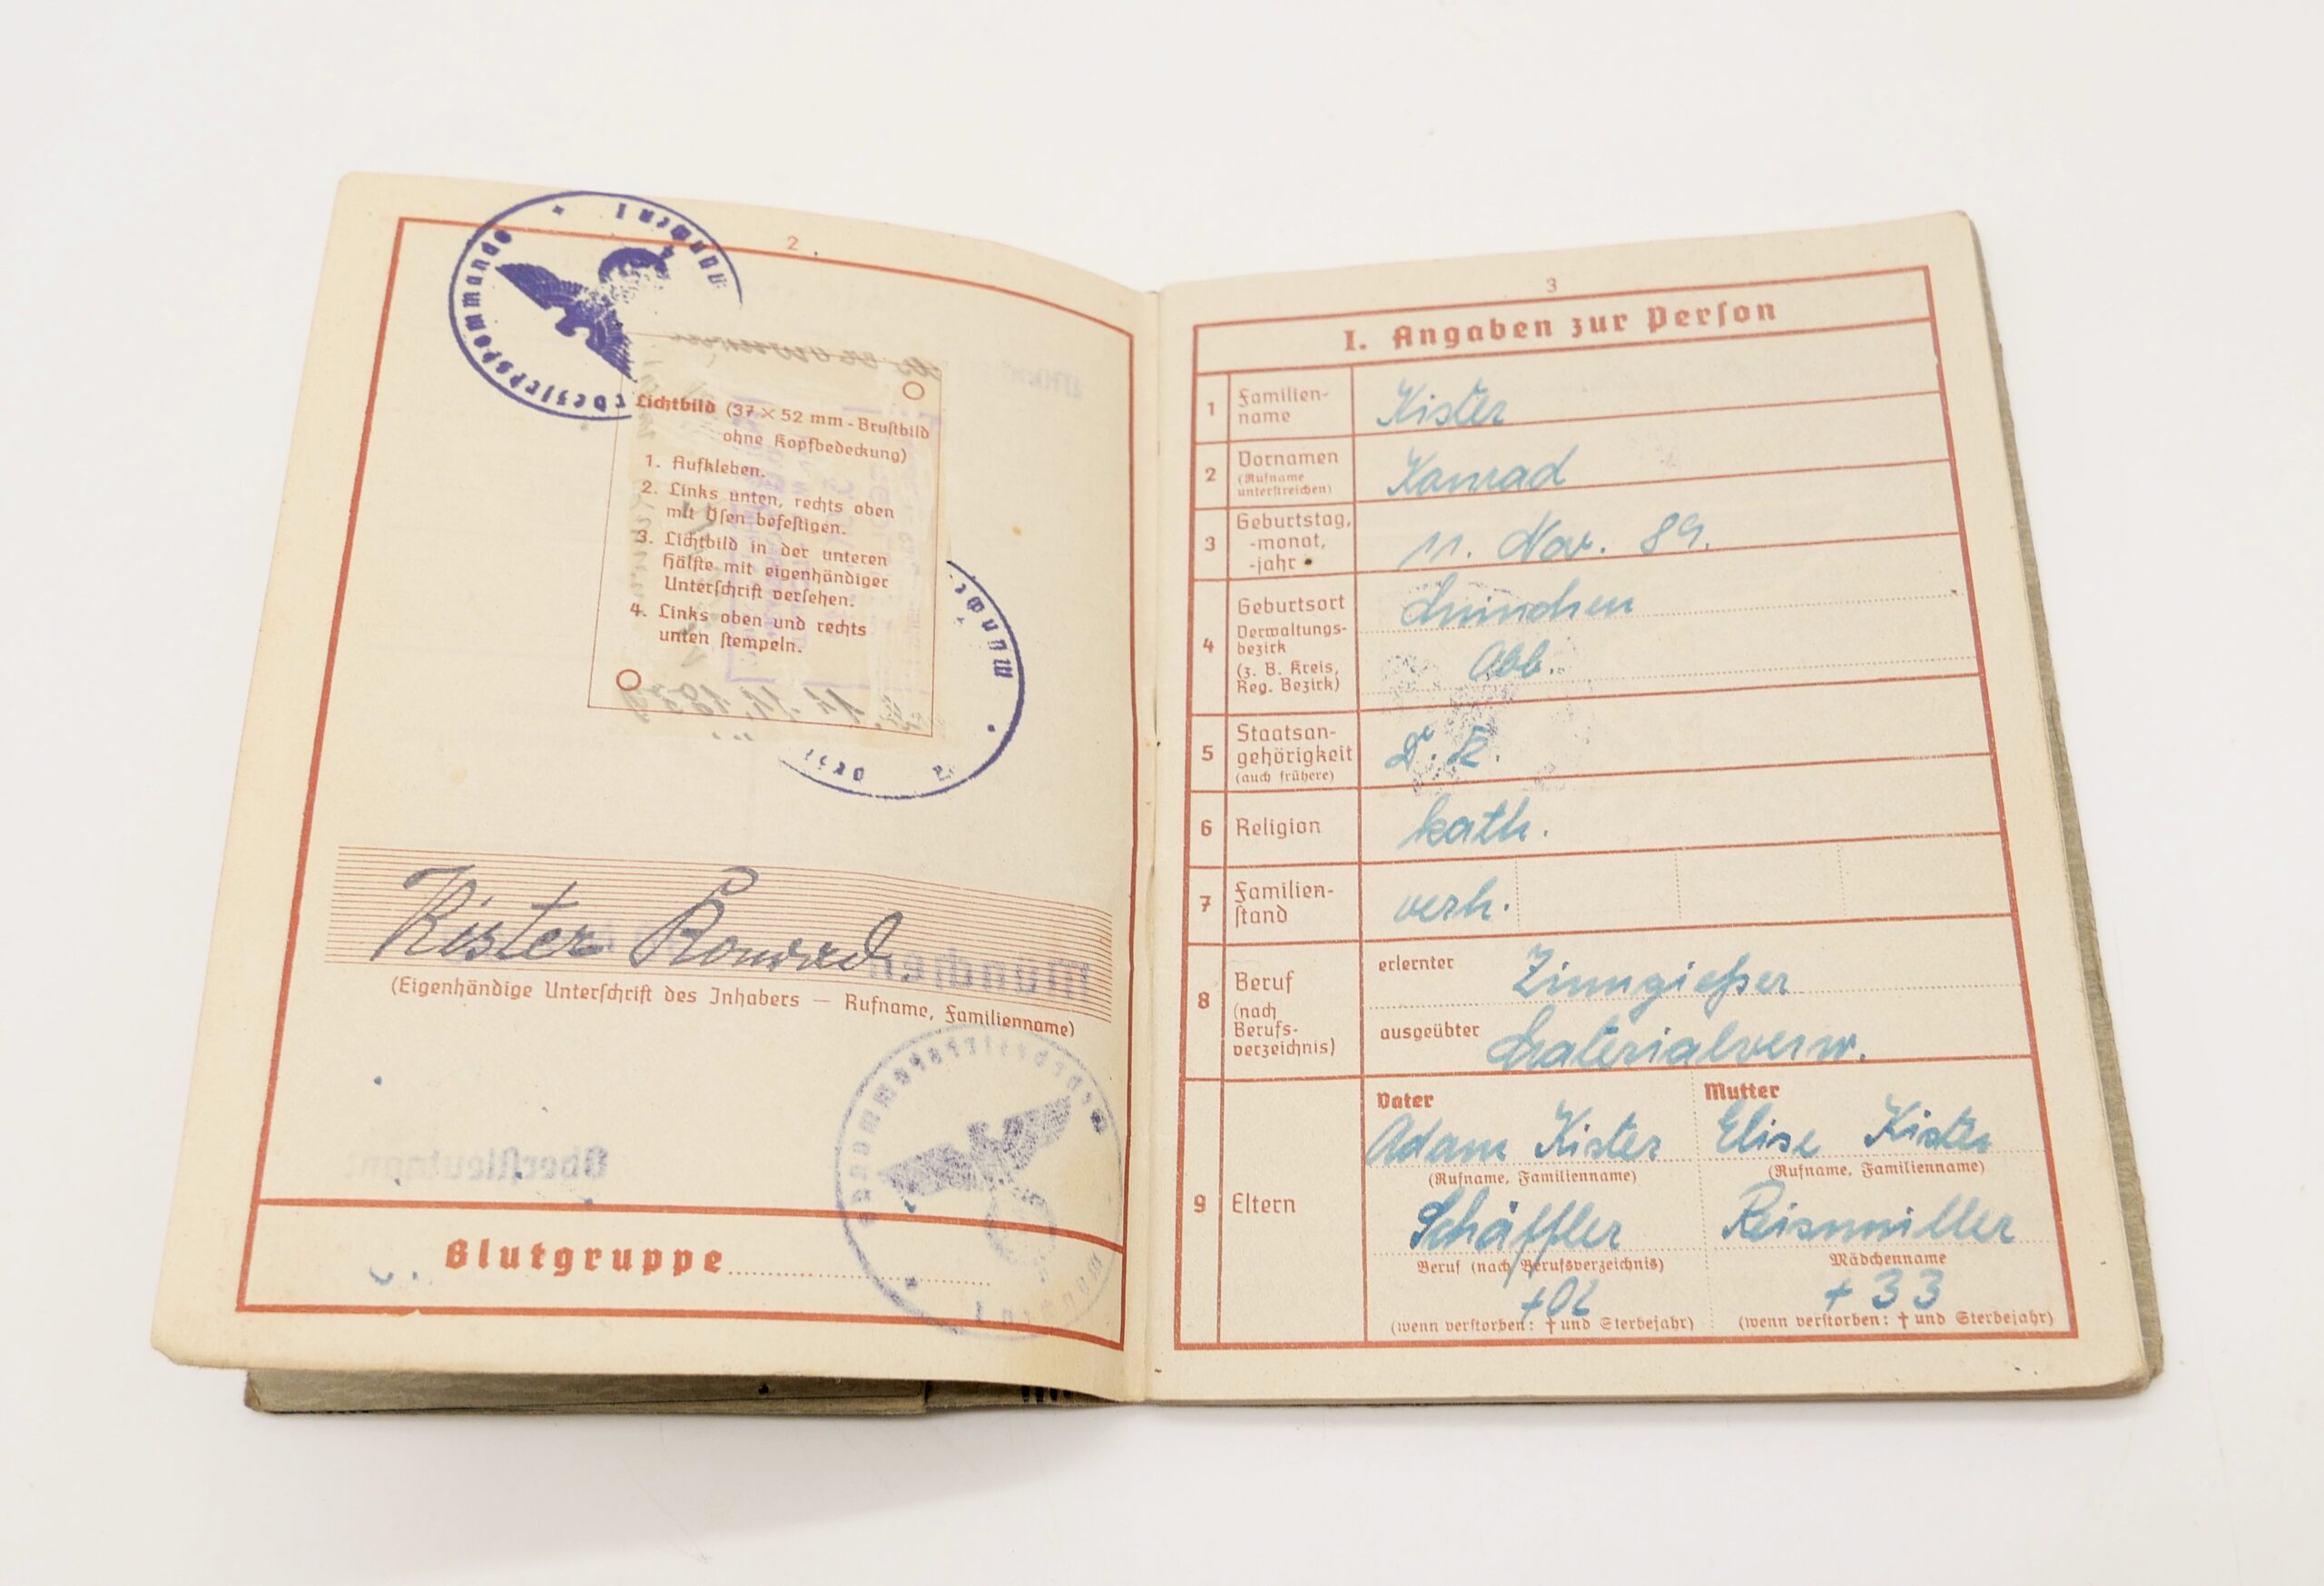 2
Wehrbezirkskommando München I
Lichtbild (37 × 52 mm - Brustbild
ohne Kopfbedeckung)
1. Aufkleben.
2. Links unten, rechts oben
mit Ösen befestigen.
3. Lichtbild in der unteren
Hälfte mit eigenhändiger
Unterschrift versehen.
4. Links oben und rechts
unten stempeln.
Kister Konrad
(Eigenhändige Unterschrift des Inhabers — Rufname, Familienname)
Blutgruppe
3
I. Angaben zur Person
1 Familien-
name
Kister
2 Vornamen
(Rufname
unterstreichen)
Konrad
3 Geburtstag,
-monat,
-jahr
11. Nov. 89.
4 Geburtsort
Verwaltungs-
bezirk
(z. B. Kreis,
Reg. Bezirk)
München
Obb.
5 Staatsan-
gehörigkeit
(auch frühere)
D. R.
6 Religion
kath.
7 Familien-
stand
verh.
8 Beruf
(nach
Berufs-
verzeichnis)
erlernter Zinngießer
ausgeübter Materialverw.
9 Eltern
Vater Mutter
Adam Kister Elise Kister
(Rufname, Familienname) (Rufname, Familienname)
Schäffler Reismiller
Beruf (nach Berufsverzeichnis) Mädchenname
+02 + 33
(wenn verstorben: † und Sterbejahr) (wenn verstorben: † und Sterbejahr)